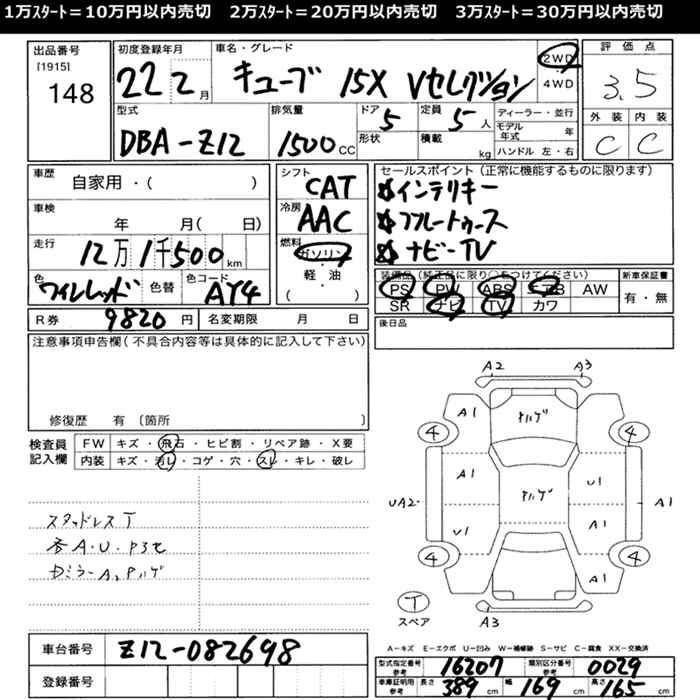 1万ｽﾀｰﾄ＝10万円以内売切　2万ｽﾀｰﾄ＝20万円以内売切　3万ｽﾀｰﾄ＝30万円以内売切
出品番号
[1915]
148
初度登録年月
22 2月
車名・グレード
キューブ 15X Vセレクション
2WD
・
4WD
評価点
3.5
外装 内装
C C
型式
DBA-Z12
排気量
1500CC
ドア
5
形状
定員
5人
積載
kg
ディーラー・並行
モデル年式 年
ハンドル 左・右
車歴
自家用・( )
車検
年 月( 日)
走行
12万1千500km
色
ワインレッド
色替
色コード
AY4
シフト
CAT
冷房
AAC
燃料
ガソリン
・
軽・油
( )
セールスポイント(正常に機能するものに限ります)
インテリキー
ナビーTV
装備品(純正品に限り○をつけてください)
PS PW ABS エアB AW
SR ナビ TV カワ
新車保証書
有・無
後日品
R券 9820円
名変期限 月 日
注意事項申告欄(不具合内容等は具体的に記入して下さい)
修復歴 有 [箇所 ]
検査員
記入欄
FW キズ・飛石・ヒビ割・リペア跡・X要
内装 キズ・汚レ・コゲ・穴・スレ・キレ・破レ
スタッドレスT
各A.U.
車台番号 Z12-082698
登録番号
A2 A3
A1 A1
4 4
A1 U1
UA2 A1
U1 A1
4 4
A1
T
スペア
A3
A－キズ E－エクボ U－凹み W－補修跡 S－サビ C－腐食 XX－交換済
型式指定番号 参考 16207 類別区分番号 参考 0029
車庫証明用 参考 長さ 389cm 幅 169cm 高さ 165cm